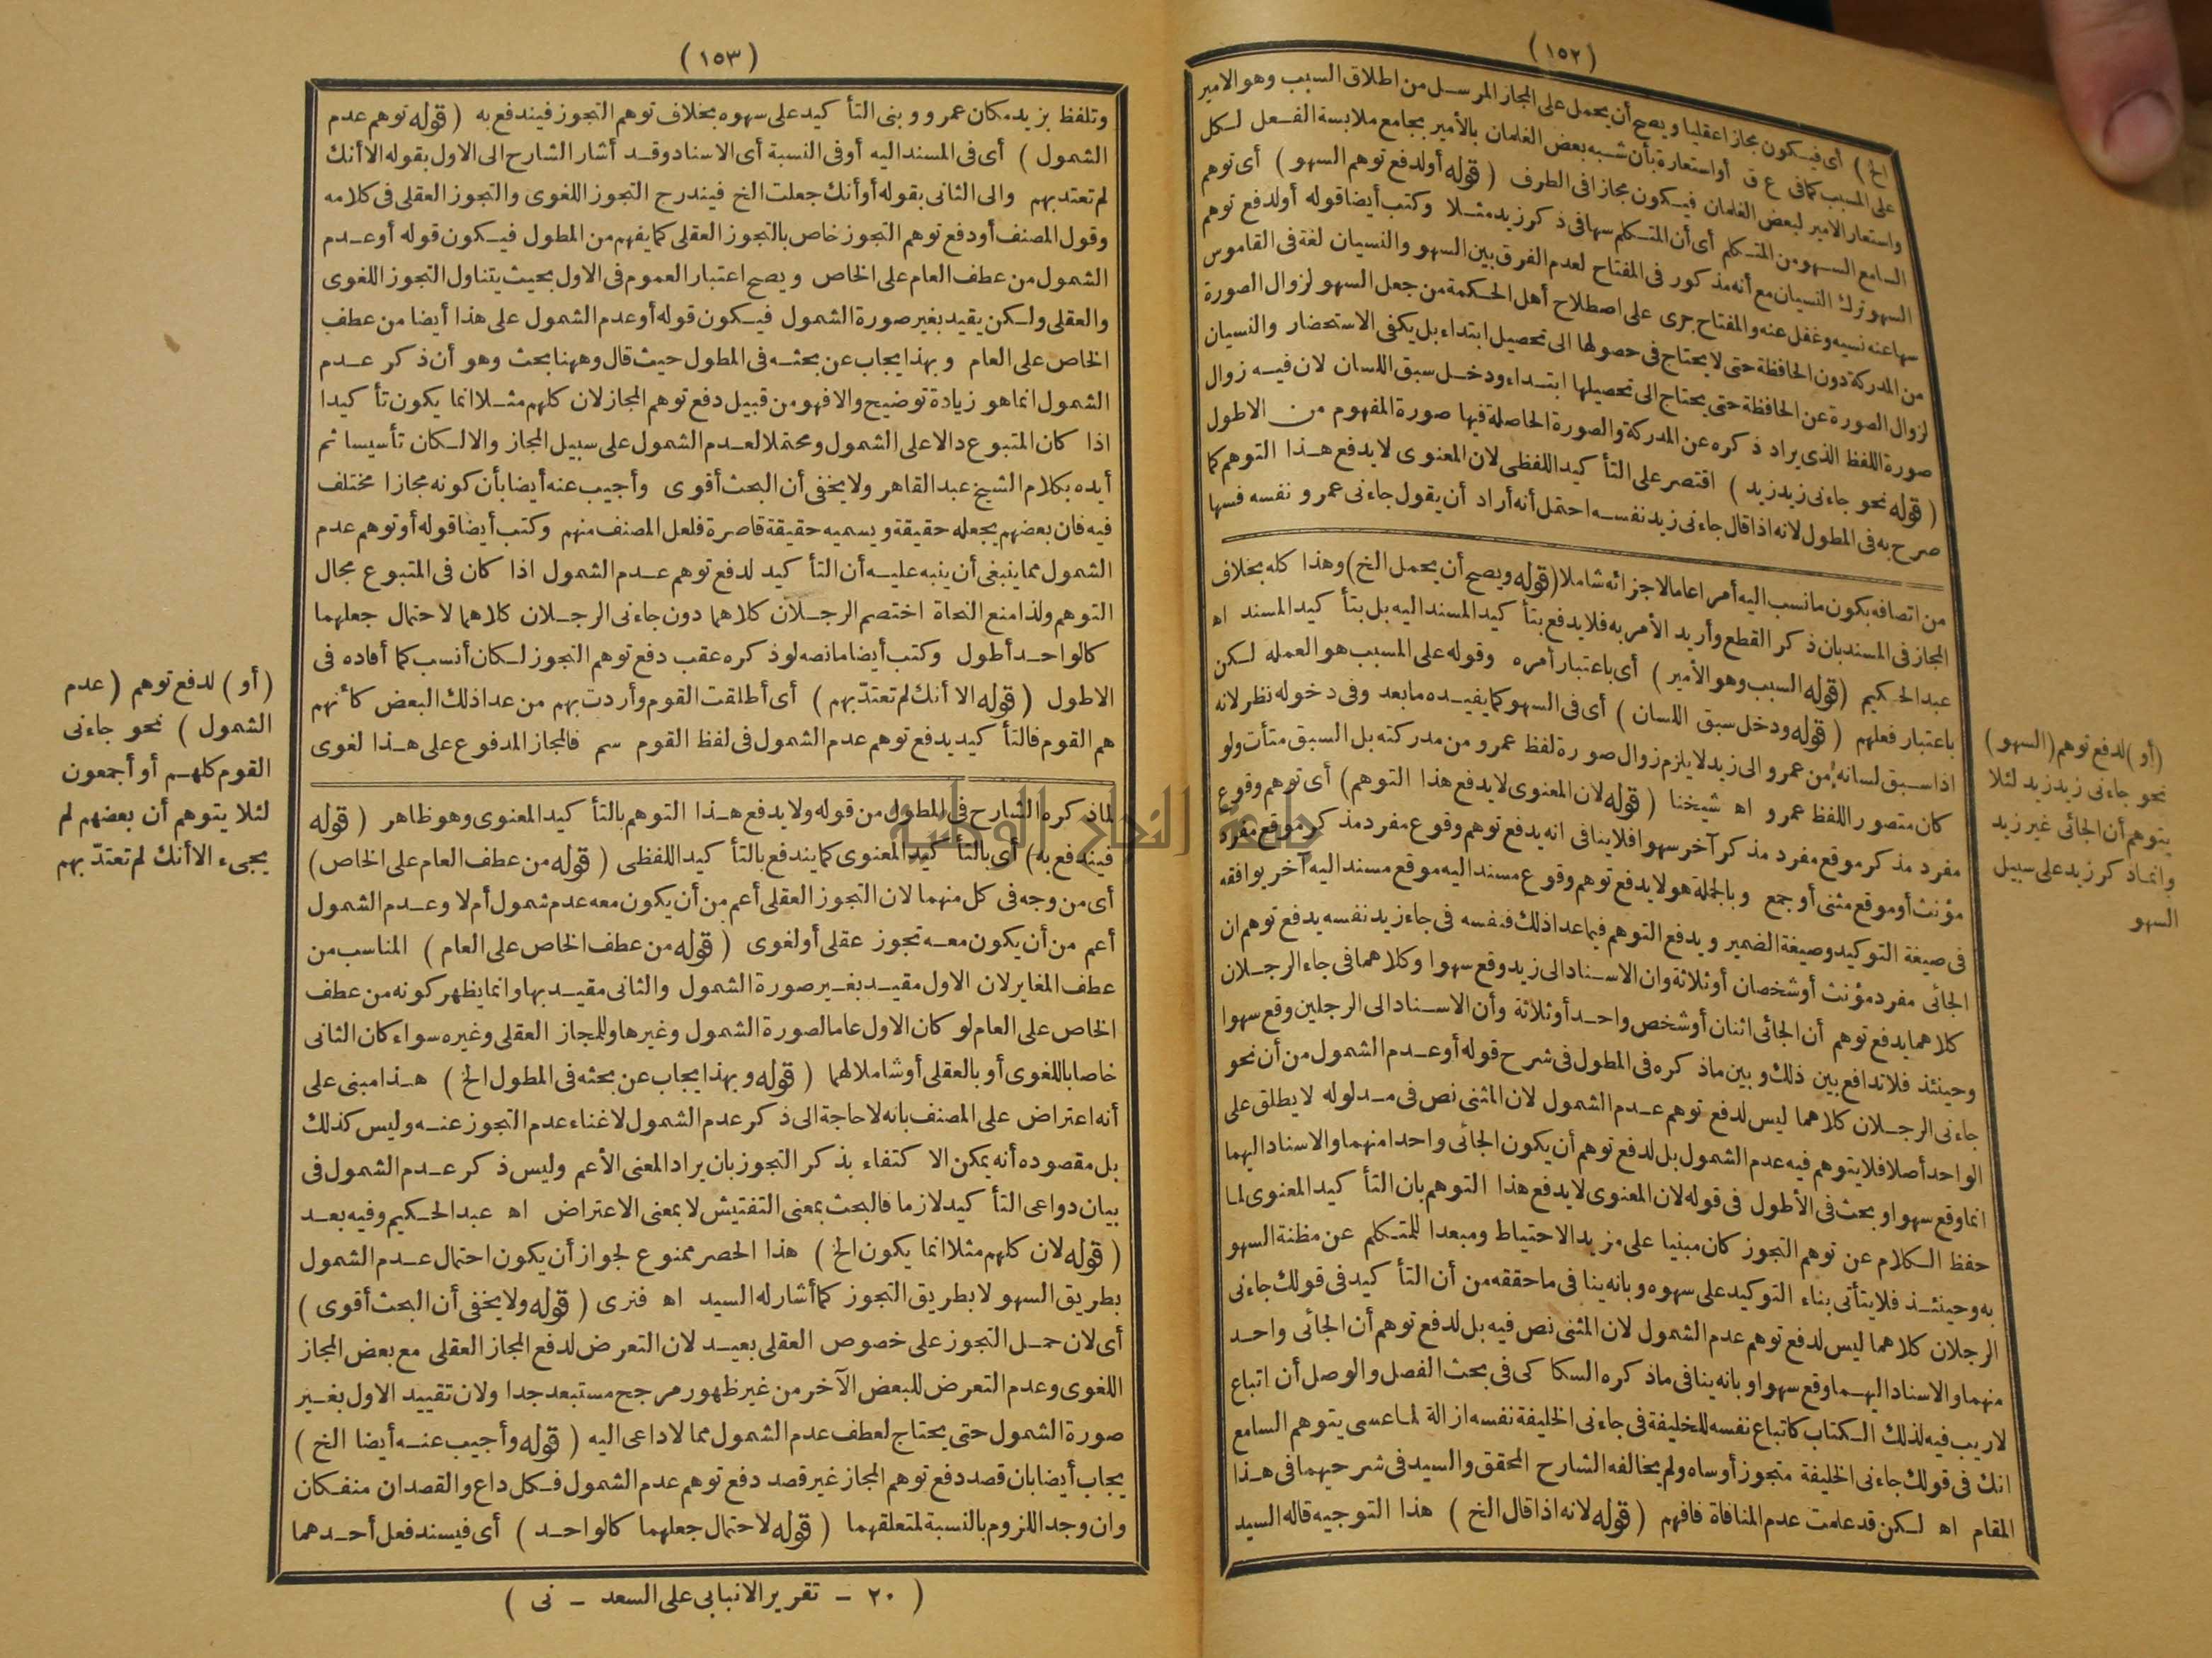 (١٥٢)
الخ) أى فيكون مجازا عقليا ويصح أن يحمل على المجاز المرسل من اطلاق السبب وهو الامير
على المسبب كما فى ع ق أو استعارة بأن شبه بعض الغلمان بالأمير بجامع ملابسة الفعل لكل
واستعار الامير لبعض الغلمان فيكون مجازا فى الطرف (قوله أولدفع توهم السهو) أى توهم
السامع السهو من المتكلم أى أن المتكلم سها فى ذكر زيد مثلا وكتب أيضا قوله أولدفع توهم
السهو ترك النسيان مع أنه مذكور فى المفتاح لعدم الفرق بين السهو والنسيان لغة فى القاموس
سها عنه نسيه وغفل عنه والمفتاح جرى على اصطلاح أهل الحكمة من جعل السهو لزوال الصورة
من المدركة دون الحافظة حتى لا يحتاج فى حصولها الى تحصيل ابتداء بل يكفى الاستحضار والنسيان
لزوال الصورة عن الحافظة حتى يحتاج الى تحصيلها ابتداء ودخل سبق اللسان لان فيه زوال
صورة اللفظ الذى يراد ذكره عن المدركة والصورة الحاصلة فيها صورة المفهوم من الاطول
(قوله نحو جاءنى زيد زيد) اقتصر على التأكيد اللفظى لان المعنوى لا يدفع هذا التوهم كما
صرح به فى المطول لانه اذا قال جاءنى زيد نفسه احتمل أنه أراد أن يقول جاءنى عمرو نفسه فسها
من اتصافه بكون ما نسب اليه أمرا عاما لاجزائه شاملا (قوله ويصح أن يحمل الخ) وهذا كله بخلاف
المجاز فى المسند بان ذكر القطع وأريد الأمر به فلا يدفع بتأكيد المسند اليه بل بتأكيد المسند اه
عبد الحكيم (قوله السبب وهو الأمير) أى باعتبار أمره وقوله على المسبب هو العمله لكن
باعتبار فعلهم (قوله ودخل سبق اللسان) أى فى السهو كما يفيده ما بعد وفى دخوله نظر لانه
اذا سبق لسانه من عمرو الى زيد لا يلزم زوال صورة لفظ عمرو من مدركته بل السبق متأت ولو
كان متصور اللفظ عمرو اه شيخنا (قوله لان المعنوى لا يدفع هذا التوهم) أى توهم وقوع
مفرد مذكر موقع مفرد مذكر آخر سهوا فلا ينافى انه يدفع توهم وقوع مفرد مذكر موقع مفرد
مؤنث أو موقع مثنى أو جمع وبالجملة هو لا يدفع توهم وقوع مسند اليه موقع مسند اليه آخر يوافقه
فى صيغة التوكيد وصيغة الضمير ويدفع التوهم فيما عدا ذلك فنفسه فى جاء زيد نفسه يدفع توهم ان
الجائى مفرد مؤنث أو شخصان أو ثلاثة وان الاسناد الى زيد وقع سهوا وكلاهما فى جاء الرجلان
كلاهما يدفع توهم أن الجائى اثنان أو شخص واحد أو ثلاثة وأن الاسناد الى الرجلين وقع سهوا
وحينئذ فلا تدافع بين ذلك وبين ما ذكره فى المطول فى شرح قوله أو عدم الشمول من أن نحو
جاءنى الرجلان كلاهما ليس لدفع توهم عدم الشمول لان المثنى نص فى مدلوله لا يطلق على
الواحد أصلا فلا يتوهم فيه عدم الشمول بل لدفع توهم أن يكون الجائى واحدا منهما والاسناد اليهما
انما وقع سهوا وبحث فى الأطول فى قوله لان المعنوى لا يدفع هذا التوهم بان التأكيد المعنوى لما
حفظ الكلام عن توهم التجوز كان مبنيا على مزيد الاحتياط ومبعدا للمتكلم عن مظنة السهو
به وحينئذ فلا يتأتى بناء التوكيد على سهوه وبانه ينافى ما حققه من أن التأكيد فى قولك جاءنى
الرجلان كلاهما ليس لدفع توهم عدم الشمول لان المثنى نص فيه بل لدفع توهم أن الجائى واحد
منهما والاسناد اليهما وقع سهوا وبانه ينافى ما ذكره السكاكى فى بحث الفصل والوصل أن اتباع
لا ريب فيه لذلك الكتاب كاتباع نفسه للخليفة فى جاءنى الخليفة نفسه ازالة لما عسى يتوهم السامع
انك فى قولك جاءنى الخليفة متجوز أو ساه ولم يخالفه الشارح المحقق والسيد فى شرحيهما فى هذا
المقام اه لكن قد علمت عدم المنافاة فافهم (قوله لانه اذا قال الخ) هذا التوجيه قاله السيد
(أو) لدفع توهم (السهو)
نحو جاءنى زيد زيد لئلا
يتوهم أن الجائى غير زيد
وانما ذكر زيد على سبيل
السهو
(١٥٣)
وتلفظ بزيد مكان عمرو وبنى التأكيد على سهوه بخلاف توهم التجوز فيندفع به (قوله توهم عدم
الشمول) أى فى المسند اليه أوفى النسبة أى الاسناد وقد أشار الشارح الى الاول بقوله الا أنك
لم تعتد بهم والى الثانى بقوله أو أنك جعلت الخ فيندرج التجوز اللغوى والتجوز العقلى فى كلامه
وقول المصنف أودفع توهم التجوز خاص بالتجوز العقلى كما يفهم من المطول فيكون قوله أو عدم
الشمول من عطف العام على الخاص ويصح اعتبار العموم فى الاول بحيث يتناول التجوز اللغوى
والعقلى ولكن يقيد بغير صورة الشمول فيكون قوله أو عدم الشمول على هذا أيضا من عطف
الخاص على العام وبهذا يجاب عن بحثه فى المطول حيث قال وههنا بحث وهو أن ذكر عدم
الشمول انما هو زيادة توضيح والا فهو من قبيل دفع توهم المجاز لان كلهم مثلا انما يكون تأكيدا
اذا كان المتبوع دالا على الشمول ومحتملا لعدم الشمول على سبيل المجاز والا لكان تأسيسا ثم
أيده بكلام الشيخ عبد القاهر ولا يخفى أن البحث أقوى وأجيب عنه أيضا بأن كونه مجازا مختلف
فيه فان بعضهم يجعله حقيقة ويسميه حقيقة قاصرة فلعل المصنف منهم وكتب أيضا قوله أو توهم عدم
الشمول مما ينبغى أن ينبه عليه أن التأكيد لدفع توهم عدم الشمول اذا كان فى المتبوع مجال
التوهم ولذا منع النحاة اختصم الرجلان كلاهما دون جاءنى الرجلان كلاهما لاحتمال جعلهما
كالواحد أطول وكتب أيضا ما نصه لو ذكره عقب دفع توهم التجوز لكان أنسب كما أفاده فى
الاطول (قوله الا أنك لم تعتدّ بهم) أى أطلقت القوم وأردت بهم من عدا ذلك البعض كأنهم
هم القوم فالتأكيد يدفع توهم عدم الشمول فى لفظ القوم سم فالمجاز المدفوع على هذا لغوى
لما ذكره الشارح فى المطول من قوله ولا يدفع هذا التوهم بالتأكيد المعنوى وهو ظاهر (قوله
فيندفع به) أى بالتأكيد المعنوى كما يندفع بالتأكيد اللفظى (قوله من عطف العام على الخاص)
أى من وجه فى كل منهما لان التجوز العقلى أعم من أن يكون معه عدم شمول أم لا وعدم الشمول
أعم من أن يكون معه تجوز عقلى أو لغوى (قوله من عطف الخاص على العام) المناسب من
عطف المغاير لان الاول مقيد بغير صورة الشمول والثانى مقيد بها وانما يظهر كونه من عطف
الخاص على العام لو كان الاول عاما لصورة الشمول وغيرها وللمجاز العقلى وغيره سواء كان الثانى
خاصا باللغوى أو بالعقلى أو شاملا لهما (قوله وبهذا يجاب عن بحثه فى المطول الخ) هذا مبنى على
أنه اعتراض على المصنف بانه لا حاجة الى ذكر عدم الشمول لاغناء عدم التجوز عنه وليس كذلك
بل مقصوده أنه يمكن الاكتفاء بذكر التجوز بان يراد المعنى الأعم وليس ذكر عدم الشمول فى
بيان دواعى التأكيد لازما فالبحث بمعنى التفتيش لا بمعنى الاعتراض اه عبد الحكيم وفيه بعد
(قوله لان كلهم مثلا انما يكون الخ) هذا الحصر ممنوع لجواز أن يكون احتمال عدم الشمول
بطريق السهو لا بطريق التجوز كما أشار له السيد اه فنرى (قوله ولا يخفى أن البحث أقوى)
أى لان حمل التجوز على خصوص العقلى بعيد لان التعرض لدفع المجاز العقلى مع بعض المجاز
اللغوى وعدم التعرض للبعض الآخر من غير ظهور مرجح مستبعد جدا ولان تقييد الاول بغير
صورة الشمول حتى يحتاج لعطف عدم الشمول مما لا داعى اليه (قوله وأجيب عنه أيضا الخ)
يجاب أيضا بان قصد دفع توهم المجاز غير قصد دفع توهم عدم الشمول فكل داع والقصدان منفكان
وان وجد اللزوم بالنسبة لمتعلقهما (قوله لاحتمال جعلهما كالواحد) أى فيسند فعل أحدهما
(أو) لدفع توهم (عدم
الشمول) نحو جاءنى
القوم كلهم أو أجمعون
لئلا يتوهم أن بعضهم لم
يجىء الا أنك لم تعتدّ بهم
(٢٠ - تقرير الانبابى على السعد - نى)
جامعة النجاح الوطنية